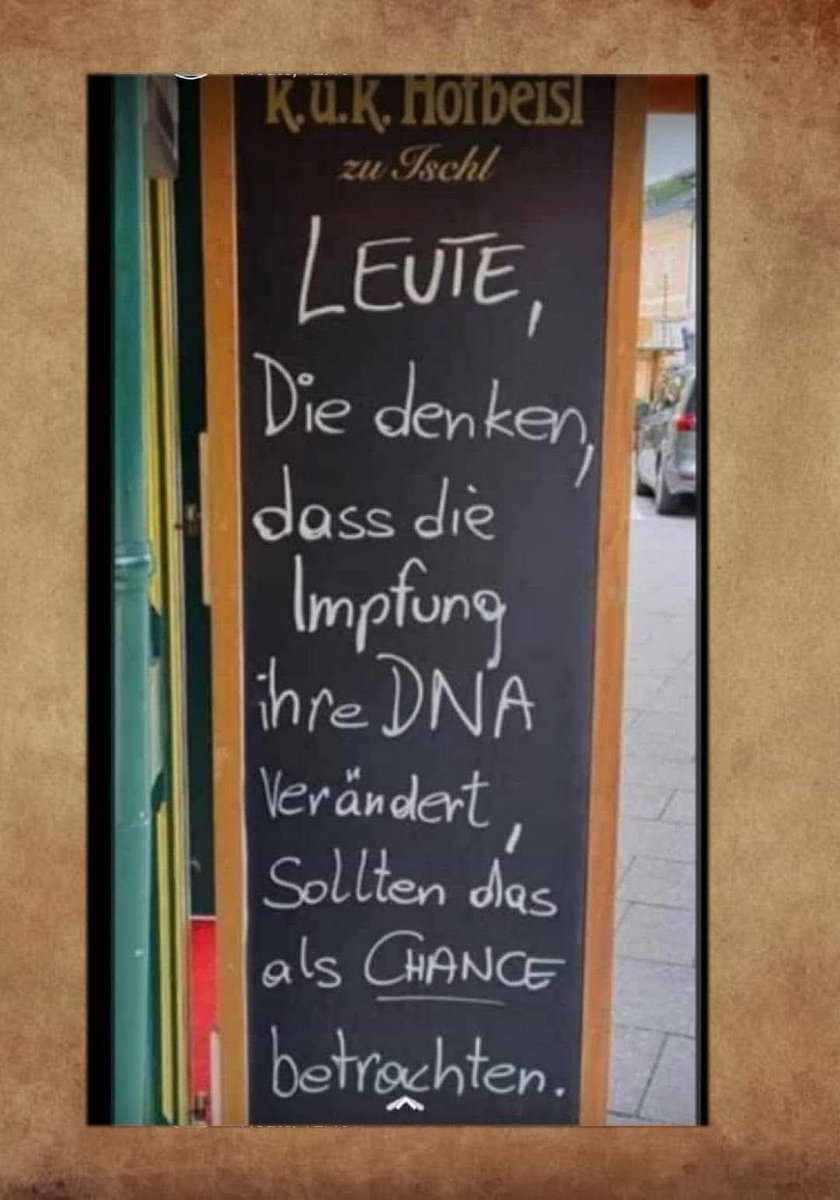 k.u.k. Hofbeisl
zu Ischl
LEUTE,
Die denken,
dass die
Impfung
ihre DNA
Verändert,
Sollten das
als CHANCE
betrachten.